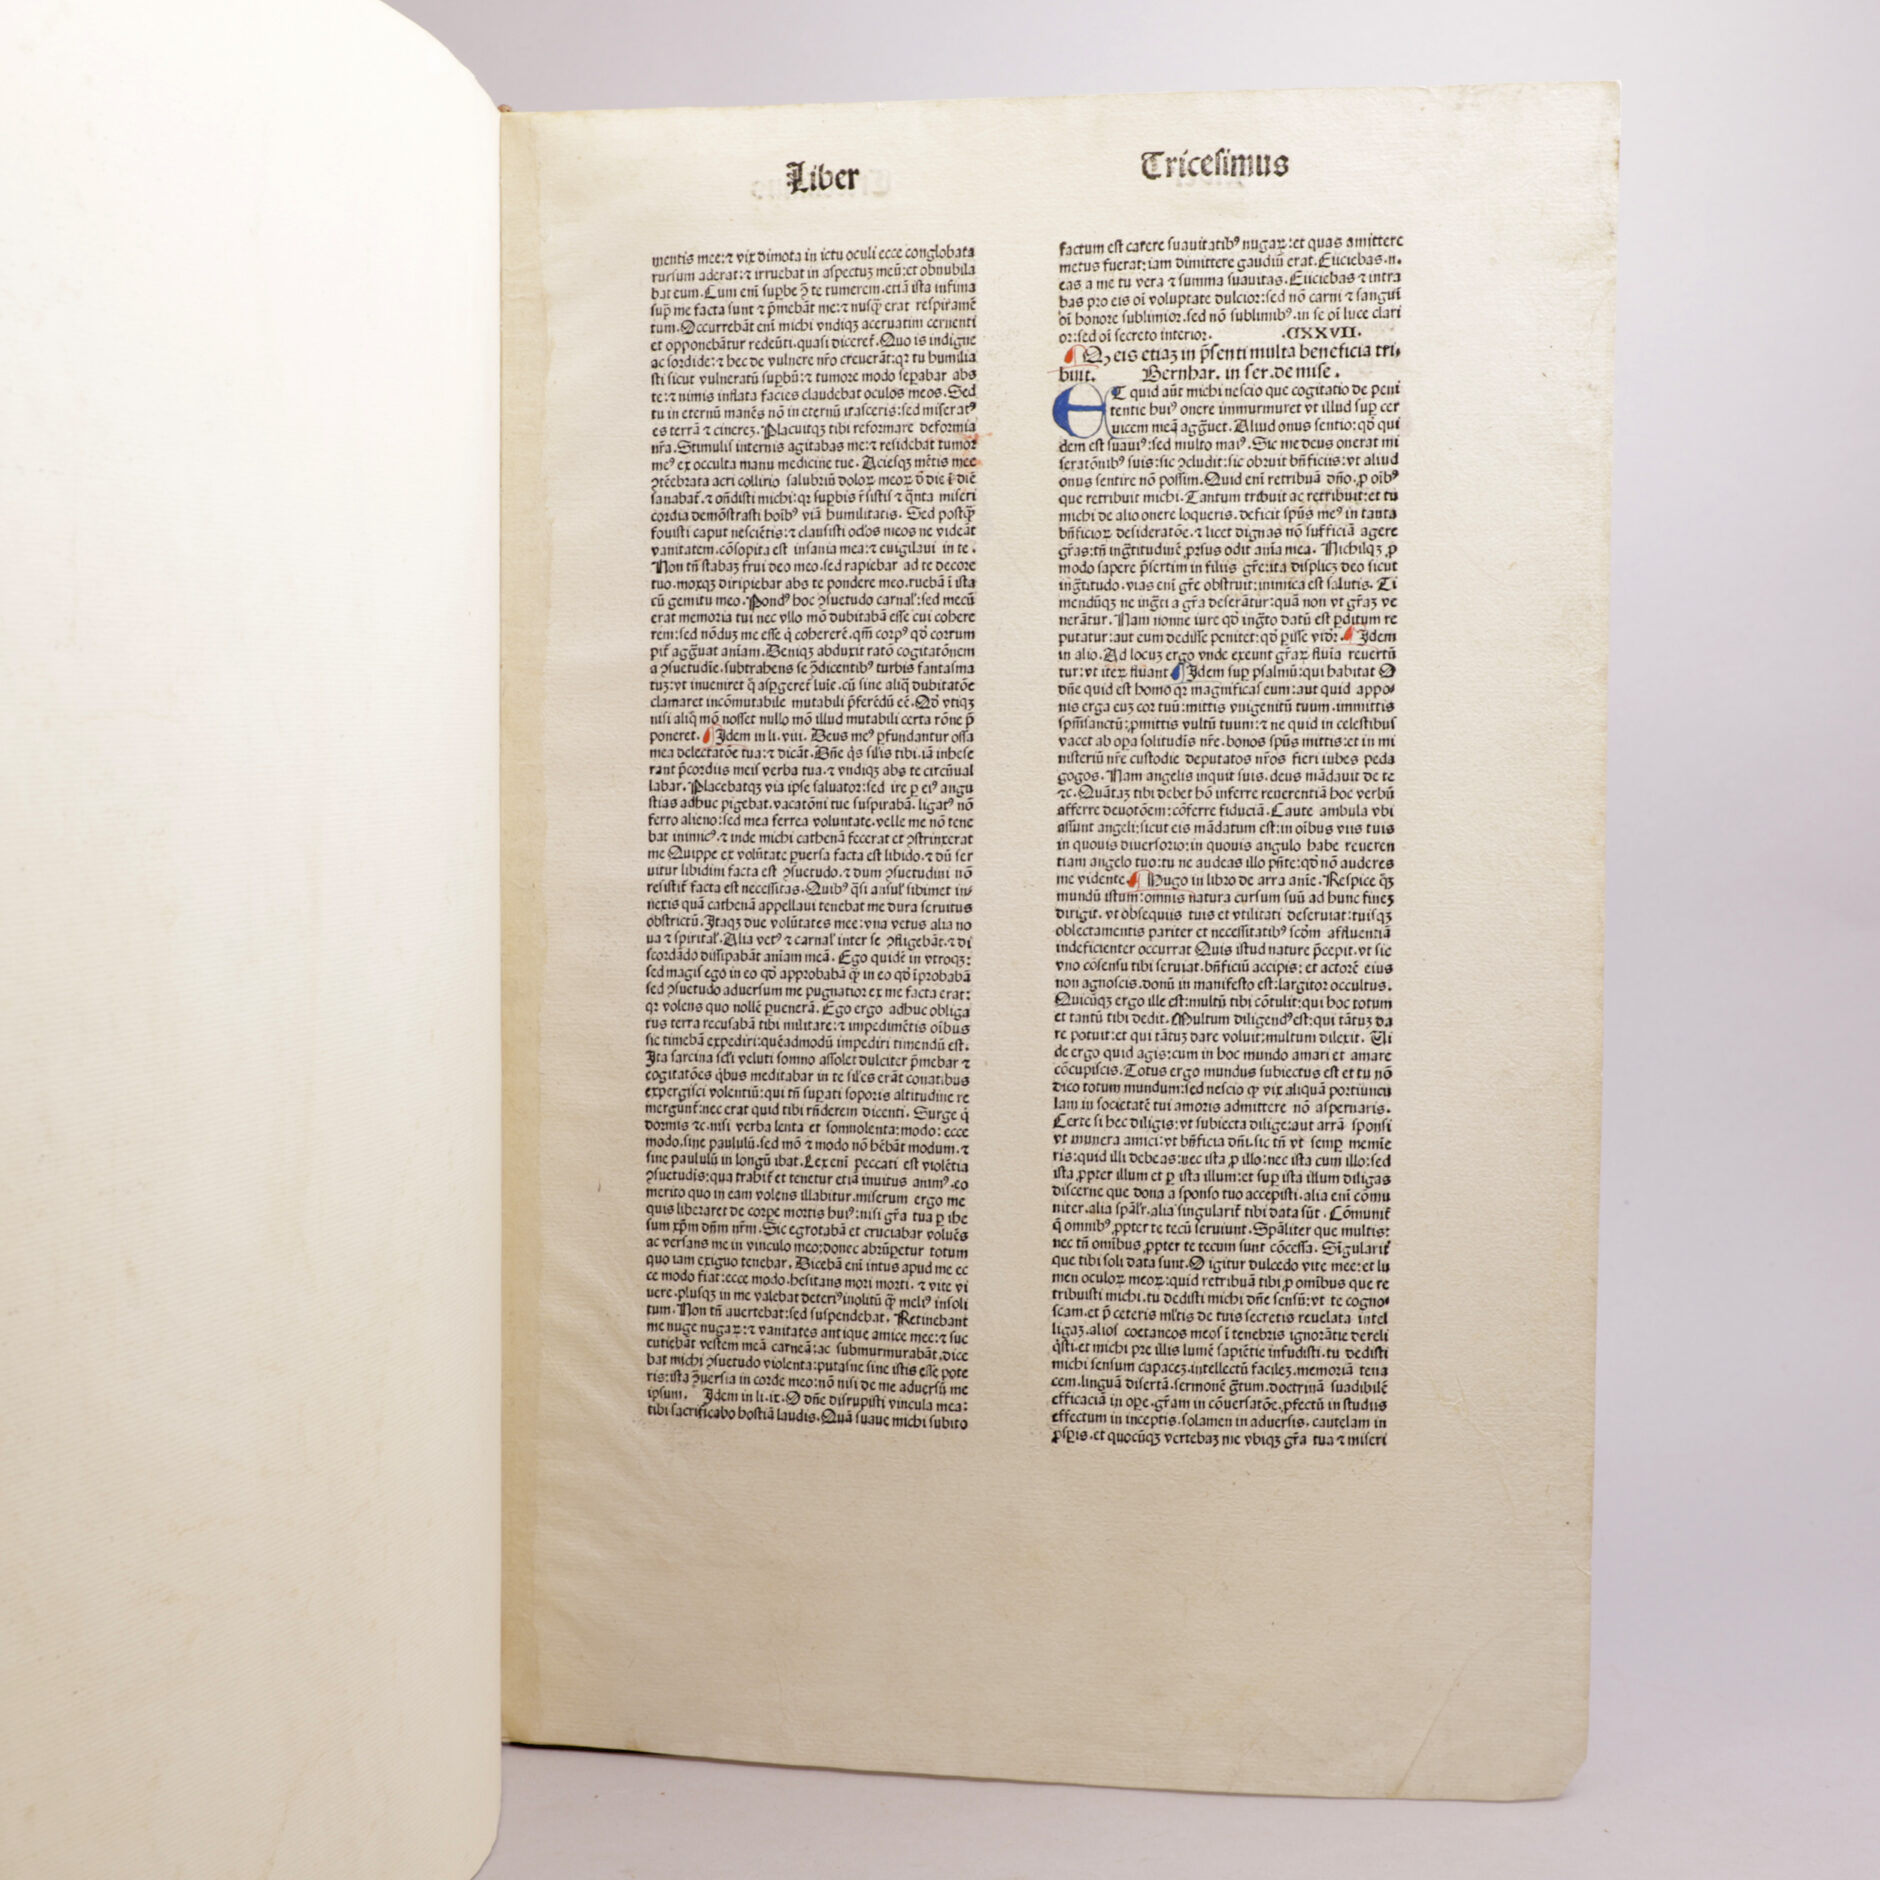 Liber
Tricesimus
mentis mee:⁊ vix dimota in ictu oculi ecce conglobata
rursum aderat:⁊ irruebat in aspectuꝫ meū:et obnubila
bat eum. Cum eni suꝑbe ↄ̄ te tumerem.etiā ista infima
sup̄ me facta sunt ⁊ p̄mebāt me:⁊ nusq̄ erat respiramē
tum. Occurrebāt eni michi vndiqꝫ aceruatim cernenti
et opponebātur redeūti.quasi diceret̄. Quo is indigne
ac sordide:⁊ hec de vulnere nr̄o creuerāt:qꝛ tu humilia
sti sicut vulneratū suꝑbū:⁊ tumore modo seꝑabar abs
te:⁊ nimis inflata facies claudebat oculos meos. Sed
tu in eternū manēs nō in eternū irasceris:sed miseratꝰ
es terrā ⁊ cinereꝫ. Placuitqꝫ tibi reformare deformia
nr̄a. Stimulis internis agitabas me:⁊ residebat tumor
meꝰ ex occulta manu medicine tue. Aciesqꝫ mētis mee
ↄtēbrata acri collirio salubriū doloꝝ meoꝝ d̄ die ī diē
sanabat̄.⁊ oñdisti michi:qꝛ suꝑbis r̄sistis ⁊ q̄nta miseri
cordia demōstrasti hoibꝰ viā humilitatis. Sed postq̄
fouisti caput nesciētis:⁊ clausisti ocl'os meos ne videāt
vanitatem.cōsopita est insania mea:⁊ euigilaui in te.
Non tn̄ stabaꝫ frui deo meo.sed rapiebar ad te decore
tuo.moxqꝫ diripiebar abs te pondere meo.ruebā ī ista
cū gemitu meo. Pondꝰ hoc ↄsuetudo carnal':sed mecū
erat memoria tui nec vllo mō dubitabā esse cui cohere
rem:sed nōduꝫ me esse q̇ cohererē.qm̄ corpꝰ qd̄ corrum
pit̄ agg̈uat aniam. Deniqꝫ abduxit ratō cogitatōnem
a ↄsuetudīe.subtrahens se ↄ̄dicentibꝰ turbis fantasma
tuꝫ:vt inueniret q̇ aspgeret̄ luīe.cū sine aliq̄ dubitatōe
clamaret incōmutabile mutabili p̄ferēdū eē. Qd̄ vtiqꝫ
nisi aliq̄ mō nosset nullo mō illud mutabili certa rōne p̄
poneret. Idem in li.viii. Deus meꝰ ꝑfundantur ossa
mea delectatōe tua:⁊ dicāt. Dn̄e q̄s sil'is tibi.iā inhese
rant p̄cordiis meis verba tua.⁊ vndiqꝫ abs te circūual
labar. Placebatqꝫ via ipse saluator:sed ire ꝑ eiꝰ angu
stias adhuc pigebat.vacatōni tue suspirabā.ligatꝰ nō
ferro alieno:sed mea ferrea voluntate.velle me nō tene
bat inimicꝰ.⁊ inde michi cathenā fecerat et ↄstrinxerat
me Quippe ex volūtate ꝑuersa facta est libido.⁊ dū ser
uitur libidini facta est ↄsuetudo.⁊ dum ↄsuetudini nō
resistit̄ facta est necessitas. Quibꝰ q̄si ansul' sibimet in-
nexis quā cathenā appellaui tenebat me dura seruitus
obstrictū. Itaqꝫ due volūtates mee:vna vetus alia no
ua ⁊ spirital'. Alia vetꝰ ⁊ carnal' inter se ↄfligebāt.⁊ di
scordādo dissipabāt aniam meā. Ego quidē in vtroqꝫ:
sed magis ego in eo qd̄ approbabā q̄ in eo qd̄ īprobabā
sed ↄsuetudo aduersum me pugnatior ex me facta erat:
qꝛ volens quo nollē ꝑuenerā. Ego ergo adhuc obliga
tus terra recusabā tibi militare:⁊ impedimētis oībus
sic timebā expediri:quēadmodū impediri timendū est.
Ita sarcina scl'i veluti somno assolet dulciter p̄mebar ⁊
cogitatōes q̇bus meditabar in te sil'es erāt conatibus
expergisci volentiū:qui tn̄ suꝑati soporis altitudine re
mergunt̄:nec erat quid tibi rn̄derem dicenti. Surge q̇
dormis ⁊c.nisi verba lenta et somnolenta:modo: ecce
modo.sine paululū.sed mō ⁊ modo nō hēbāt modum.⁊
sine paululū in longū ibat. Lex eni peccati est violētia
ↄsuetudis:qua trahit̄ et tenetur etiā inuitus animꝰ.eo
merito quo in eam volens illabitur.miserum ergo me
quis liberaret de corꝑe mortis huiꝰ:nisi gr̄a tua ꝑ ihe
sum xp̄m dn̄m nr̄m. Sic egrotabā et cruciabar voluēs
ac versans me in vinculo meo:donec abrūpetur totum
quo iam exiguo tenebar. Dicebā eni intus apud me ec
ce modo fiat:ecce modo.hesitans mori morti. ⁊ vite vi
uere.plusqꝫ in me valebat deteriꝰ inolitū q̄ meliꝰ insoli
tum. Non tn̄ auertebat:sed suspendebat. Retinebant
me nuge nugaꝝ:⁊ vanitates antique amice mee:⁊ suc
cutiebāt vestem meā carneā:ac submurmurabāt.dice
bat michi ↄsuetudo violenta:putasne sine istis esse pote
ris:ista ↄ̄uersia in corde meo:nō nisi de me aduersū me
ipsum. Idem in li.ix. O dn̄e disrupisti vincula mea:
tibi sacrificabo hostiā laudis. Quā suaue michi subito
factum est carere suauitatibꝰ nugaꝝ:et quas amittere
metus fuerat:iam dimittere gaudiū erat. Eiiciebas.n.
eas a me tu vera ⁊ summa suauitas. Eiiciebas ⁊ intra
bas pro eis oī voluptate dulcior:sed nō carni ⁊ sanguī
oī honore sublimior.sed nō sublimibꝰ.in se oī luce clari
or:sed oī secreto interior. .CXXVII.
Q eis etiaꝫ in p̄senti multa beneficia tri-
buit. Bernhar. in ser.de mise.
ET quid aūt michi nescio que cogitatio de peni
tentie huiꝰ onere immurmuret vt illud sup cer
uicem meā agg̈uet. Aliud onus sentio:qd̄ qui
dem est suauiꝰ:sed multo maiꝰ. Sic me deus onerat mi
seratōnibꝰ suis:sic ↄcludit:sic obruit bn̄ficiis:vt aliud
onus sentire nō possim. Quid eni retribuā dn̄o.ꝓ oībꝰ
que retribuit michi. Tantum tribuit ac retribuit:et tu
michi de alio onere loqueris.deficit sp̄us meꝰ in tanta
bn̄ficioꝝ desideratōe.⁊ licet dignas nō sufficiā agere
gr̄as:tn̄ ing̈titudinē ꝓrsus odit anīa mea. Nichilqꝫ ꝓ
modo sapere p̄sertim in filiis gr̄e:ita displicꝫ deo sicut
ing̈titudo.vias eni gr̄e obstruit:inimica est salutis. Ti
mendūqꝫ ne ing̈ti a gr̄a deserātur:quā non vt gr̄aꝫ ve
nerātur. Nam nonne iure qd̄ ing̈to datū est ꝑditum re
putatur:aut eum dedisse penitet:qd̄ ꝑisse vidꝛ. Idem
in alio. Ad locuꝫ ergo vnde exeunt gr̄aꝝ fluīa reuertū
tur:vt iteꝝ fluant Idem suꝑ psalmū:qui habitat O
dn̄e quid est homo qꝛ magnificas eum:aut quid appo-
nis erga euꝫ cor tuū:mittis vnigenitū tuum.immittis
sp̄m̄sanctū:ꝓmittis vultū tuum:⁊ ne quid in celestibus
vacet ab oꝑa solitudīs nr̄e.bonos sp̄us mittis:et in mi
nisteriū nr̄e custodie deputatos nr̄os fieri iubes peda
gogos. Nam angelis inquit suis.deus mādauit de te
⁊c. Quātaꝫ tibi debet hō inferre reuerentiā hoc verbū
afferre deuotōem:cōferre fiduciā. Caute ambula vbi
assunt angeli:sicut eis mādatum est:in oībus viis tuis
in quouis diuersorio:in quouis angulo habe reueren
tiam angelo tuo:tu ne audeas illo p̄n̄te:qd̄ nō auderes
me vidente. Hugo in libro de arra anīe. Respice q̄ꝫ
mundū istum:omnis natura cursum suū ad hunc fineꝫ
dirigit.vt obsequiis tuis et vtilitati deseruiat:tuisqꝫ
oblectamentis pariter et necessitatibꝰ scd̄m affluentiā
indeficienter occurrat Quis istud nature p̄cepit.vt sic
vno cōsensu tibi seruiat.bn̄ficiū accipis: et actorē eius
non agnoscis.donū in manifesto est:largitor occultus.
Quicūqꝫ ergo ille est:multū tibi cōtulit:qui hoc totum
et tantū tibi dedit. Multum diligendꝰ est:qui tātuꝫ da
re potuit:et qui tātuꝫ dare voluit:multum dilexit. Vi
de ergo quid agis:cum in hoc mundo amari et amare
cōcupiscis. Totus ergo mundus subiectus est et tu nō
dico totum mundum:sed nescio q̄ vix aliquā portiuncu
lam in societatē tui amoris admittere nō aspernaris.
Certe si hec diligis:vt subiecta dilige:aut arrā sponsi
vt munera amici:vt bn̄ficia dn̄i.sic tn̄ vt semꝑ memie
ris:quid illi debeas:nec ista ꝓ illo:nec ista cum illo:sed
ista ꝓpter illum et ꝑ ista illum:et suꝑ ista illum diligas
discerne que dona a sponso tuo accepisti.alia eni cōmu
niter.alia spāl'r.alia singularit̄ tibi data sūt. Cōmunit̄
q̇ omnibꝰ ꝓpter te tecū seruiunt. Spāliter que multis:
nec tn̄ omībus ꝓpter te tecum sunt cōcessa. Singularit̄
que tibi soli data sunt. O igitur dulcedo vite mee:et lu
men oculoꝝ meoꝝ:quid retribuā tibi ꝓ omībus que re
tribuisti michi.tu dedisti michi dn̄e sensū:vt te cogno-
scam.et p̄ ceteris ml'tis de tuis secretis reuelata intel
ligaꝫ.alios coetaneos meos ī tenebris ignorātie dereli
q̇sti.et michi pre illis lumē sapiētie infudisti.tu dedisti
michi sensum capaceꝫ.intellectū facileꝫ.memoriā tena
cem.linguā disertā.sermonē g̈tum.doctrinā suadibilē
efficaciā in oꝑe.gr̄am in cōuersatōe.ꝓfectū in studiis
effectum in inceptis.solamen in aduersis. cautelam in
ꝓsꝑis.et quocūqꝫ vertebaꝫ me vbiqꝫ gr̄a tua ⁊ miseri